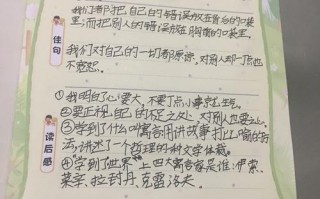 我们都把自己的错误放在背后的口袋
里;而把别人的错误放在胸前的口袋
里。
佳句
我们对自己的一切都原谅,对别人却一点也
不宽恕。
读后感
①我明白了心要大,不要丁点小事就生气。
②要正视自己的不足之处,对别人也要
③学到了什么叫寓言用讲故事打比喻的方
法,讲述了一个哲理的一种文学体裁。
④学到了世界上四大寓言家是谁:伊索、
莱辛、拉封丹、克雷洛夫。